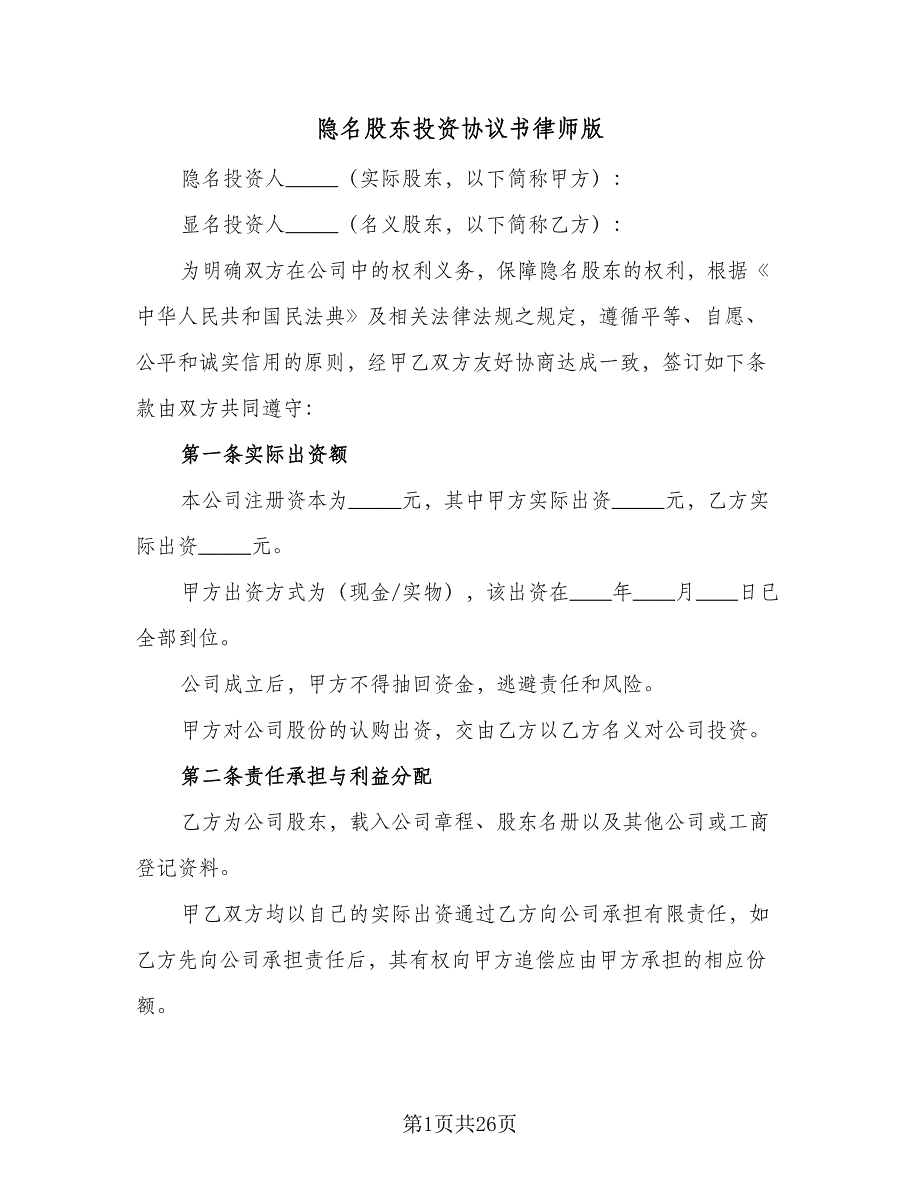 隐名股东投资协议书律师版
隐名投资人_____（实际股东，以下简称甲方）：
显名投资人_____（名义股东，以下简称乙方）：
为明确双方在公司中的权利义务，保障隐名股东的权利，根据《
中华人民共和国民法典》及相关法律法规之规定，遵循平等、自愿、
公平和诚实信用的原则，经甲乙双方友好协商达成一致，签订如下条
款由双方共同遵守：
第一条实际出资额
本公司注册资本为_____元，其中甲方实际出资_____元，乙方实
际出资_____元。
甲方出资方式为（现金/实物），该出资在____年____月____日已
全部到位。
公司成立后，甲方不得抽回资金，逃避责任和风险。
甲方对公司股份的认购出资，交由乙方以乙方名义对公司投资。
第二条责任承担与利益分配
乙方为公司股东，载入公司章程、股东名册以及其他公司或工商
登记资料。
甲乙双方均以自己的实际出资通过乙方向公司承担有限责任，如
乙方先向公司承担责任后，其有权向甲方追偿应由甲方承担的相应份
额。
第1页共26页